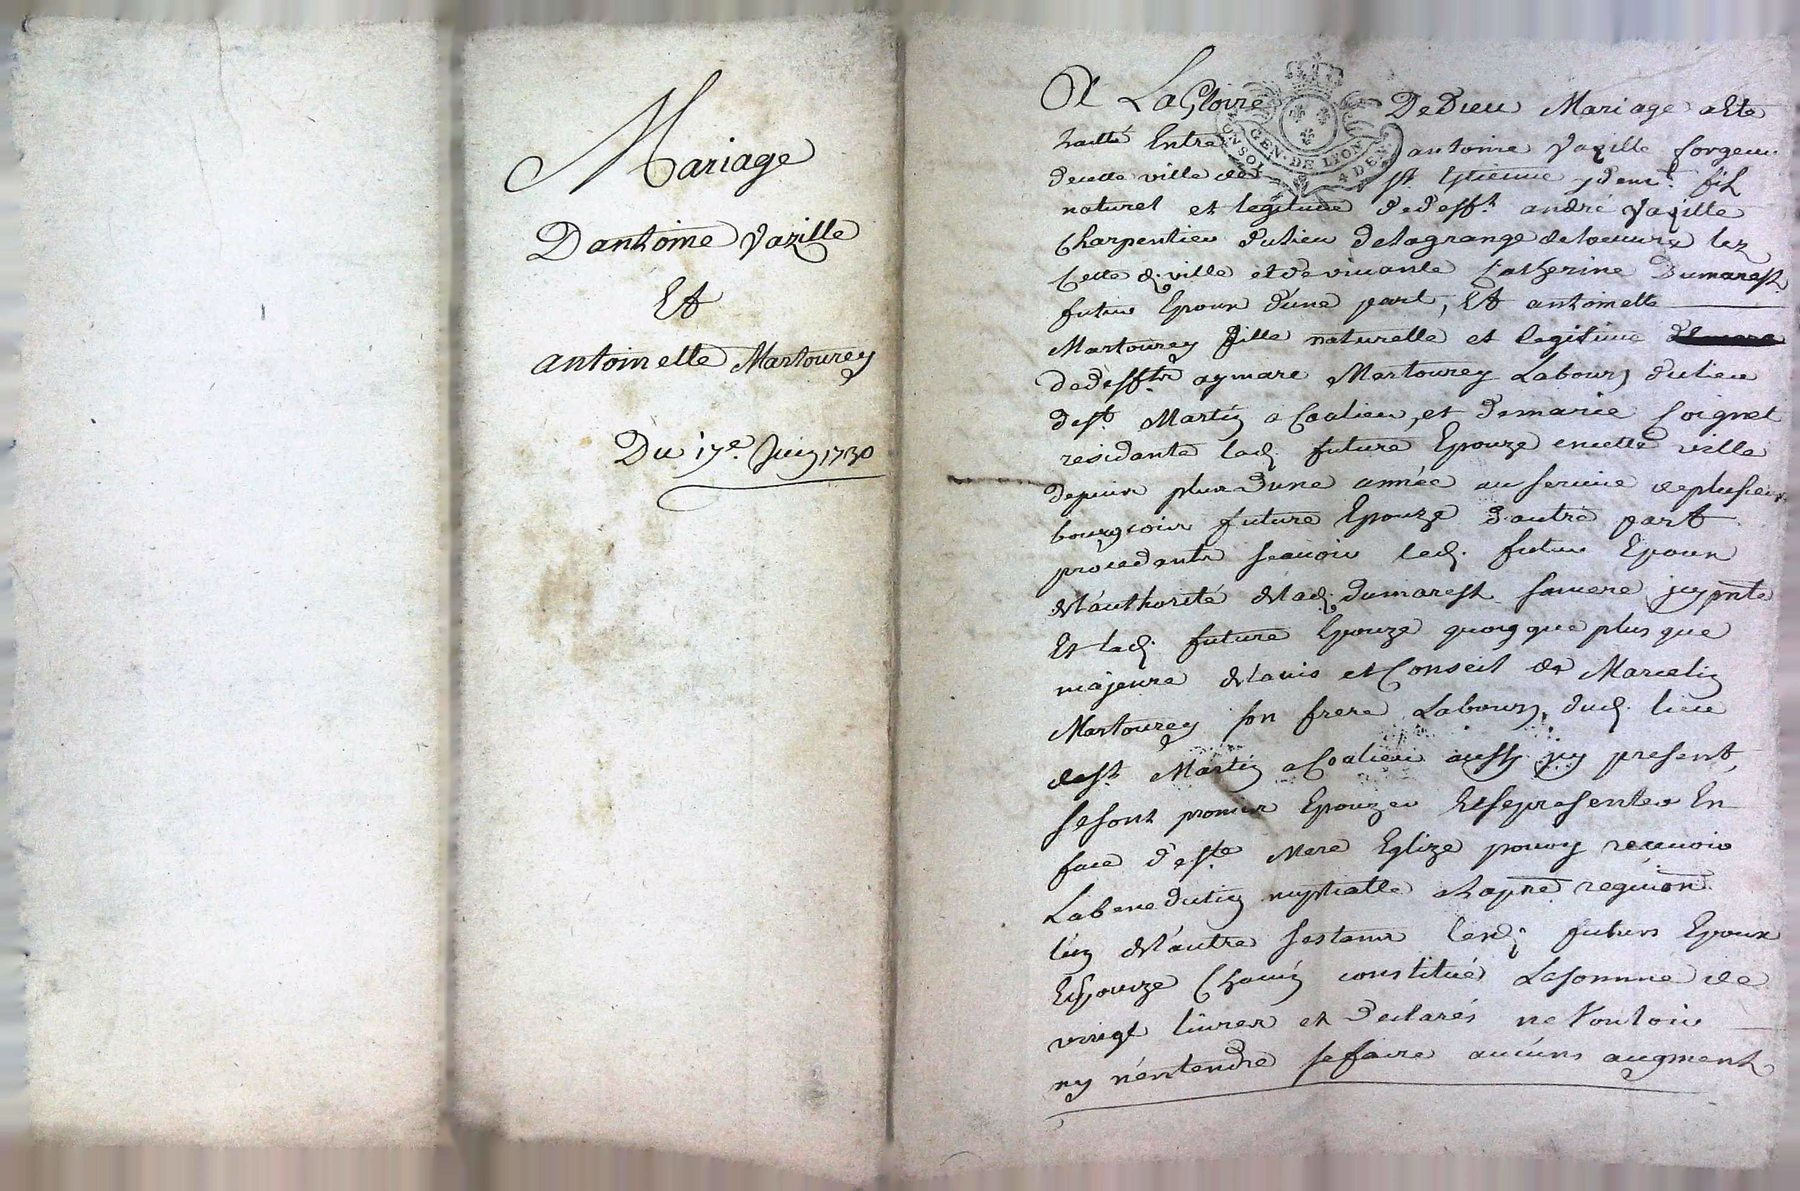 Mariage
Dantoine Vazille
Et
antoinette Martourey
Du 17e. Juin 1730
A La Gloire De Dieu Mariage a Ete
traitté Entre antoine Vazille forgeur
de cette ville de St. Estienne y demt. fils
naturel et legitime de defft. andré Vazille
Charpentier du lieu de la grange de loeuvre lez
Cette d. ville et de vivante Catherine Dumarest
futur Epoux d'une part, Et antoinette
Martourey fille naturelle et legitime
de defft. aymare Martourey Labour. du lieu
de St. Martin a Coalieu, et de marie Soignet
residante lad. future Epouze en cette ville
depuis plus d'une année au service de plusieurs
bourgeois future Epouze d'autre part
procedants scavoir led. futur Epoux
de l'authorité de lad. dumarest sa mere icy pnte
Et lad. future Epouze quoyque plus que
majeure de l'avis et Conseil de Marcelin
Martourey son frere Labour. dud. lieu
de St. Martin a Coalieu aussy icy present,
se sont promis Epouzer Et se presenter En
face de Ste. Mere Eglize pour y recevoir
La benediction nuptialle a la pre. requion.
l'un de l'autre se stant lesd. futurs Epoux
Et Epouze Chacun constitué La somme de
vingt livres et declarés ne Vouloir
ny n'entendre se faire aucuns augment
GEN. DE LYON
4 DE